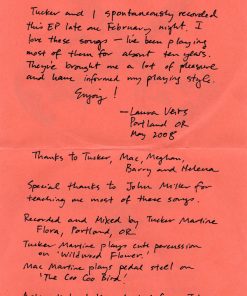 Tucker and I spontaneously recorded
this EP late one February night. I
love these songs — I've been playing
most of them for about ten years.
They've brought me a lot of pleasure
and have informed my playing style.
Enjoy!
— Laura Veirs
Portland OR
May 2008
Thanks to Tucker, Mac, Meghan,
Barry and Helena
Special thanks to John Miller for
teaching me most of these songs.
Recorded and Mixed by Tucker Martine
Flora, Portland, OR
Tucker Martine plays cuts percussion
on 'Wildwood Flower'
Mac Martine plays pedal steel on
'The Coo Coo Bird'